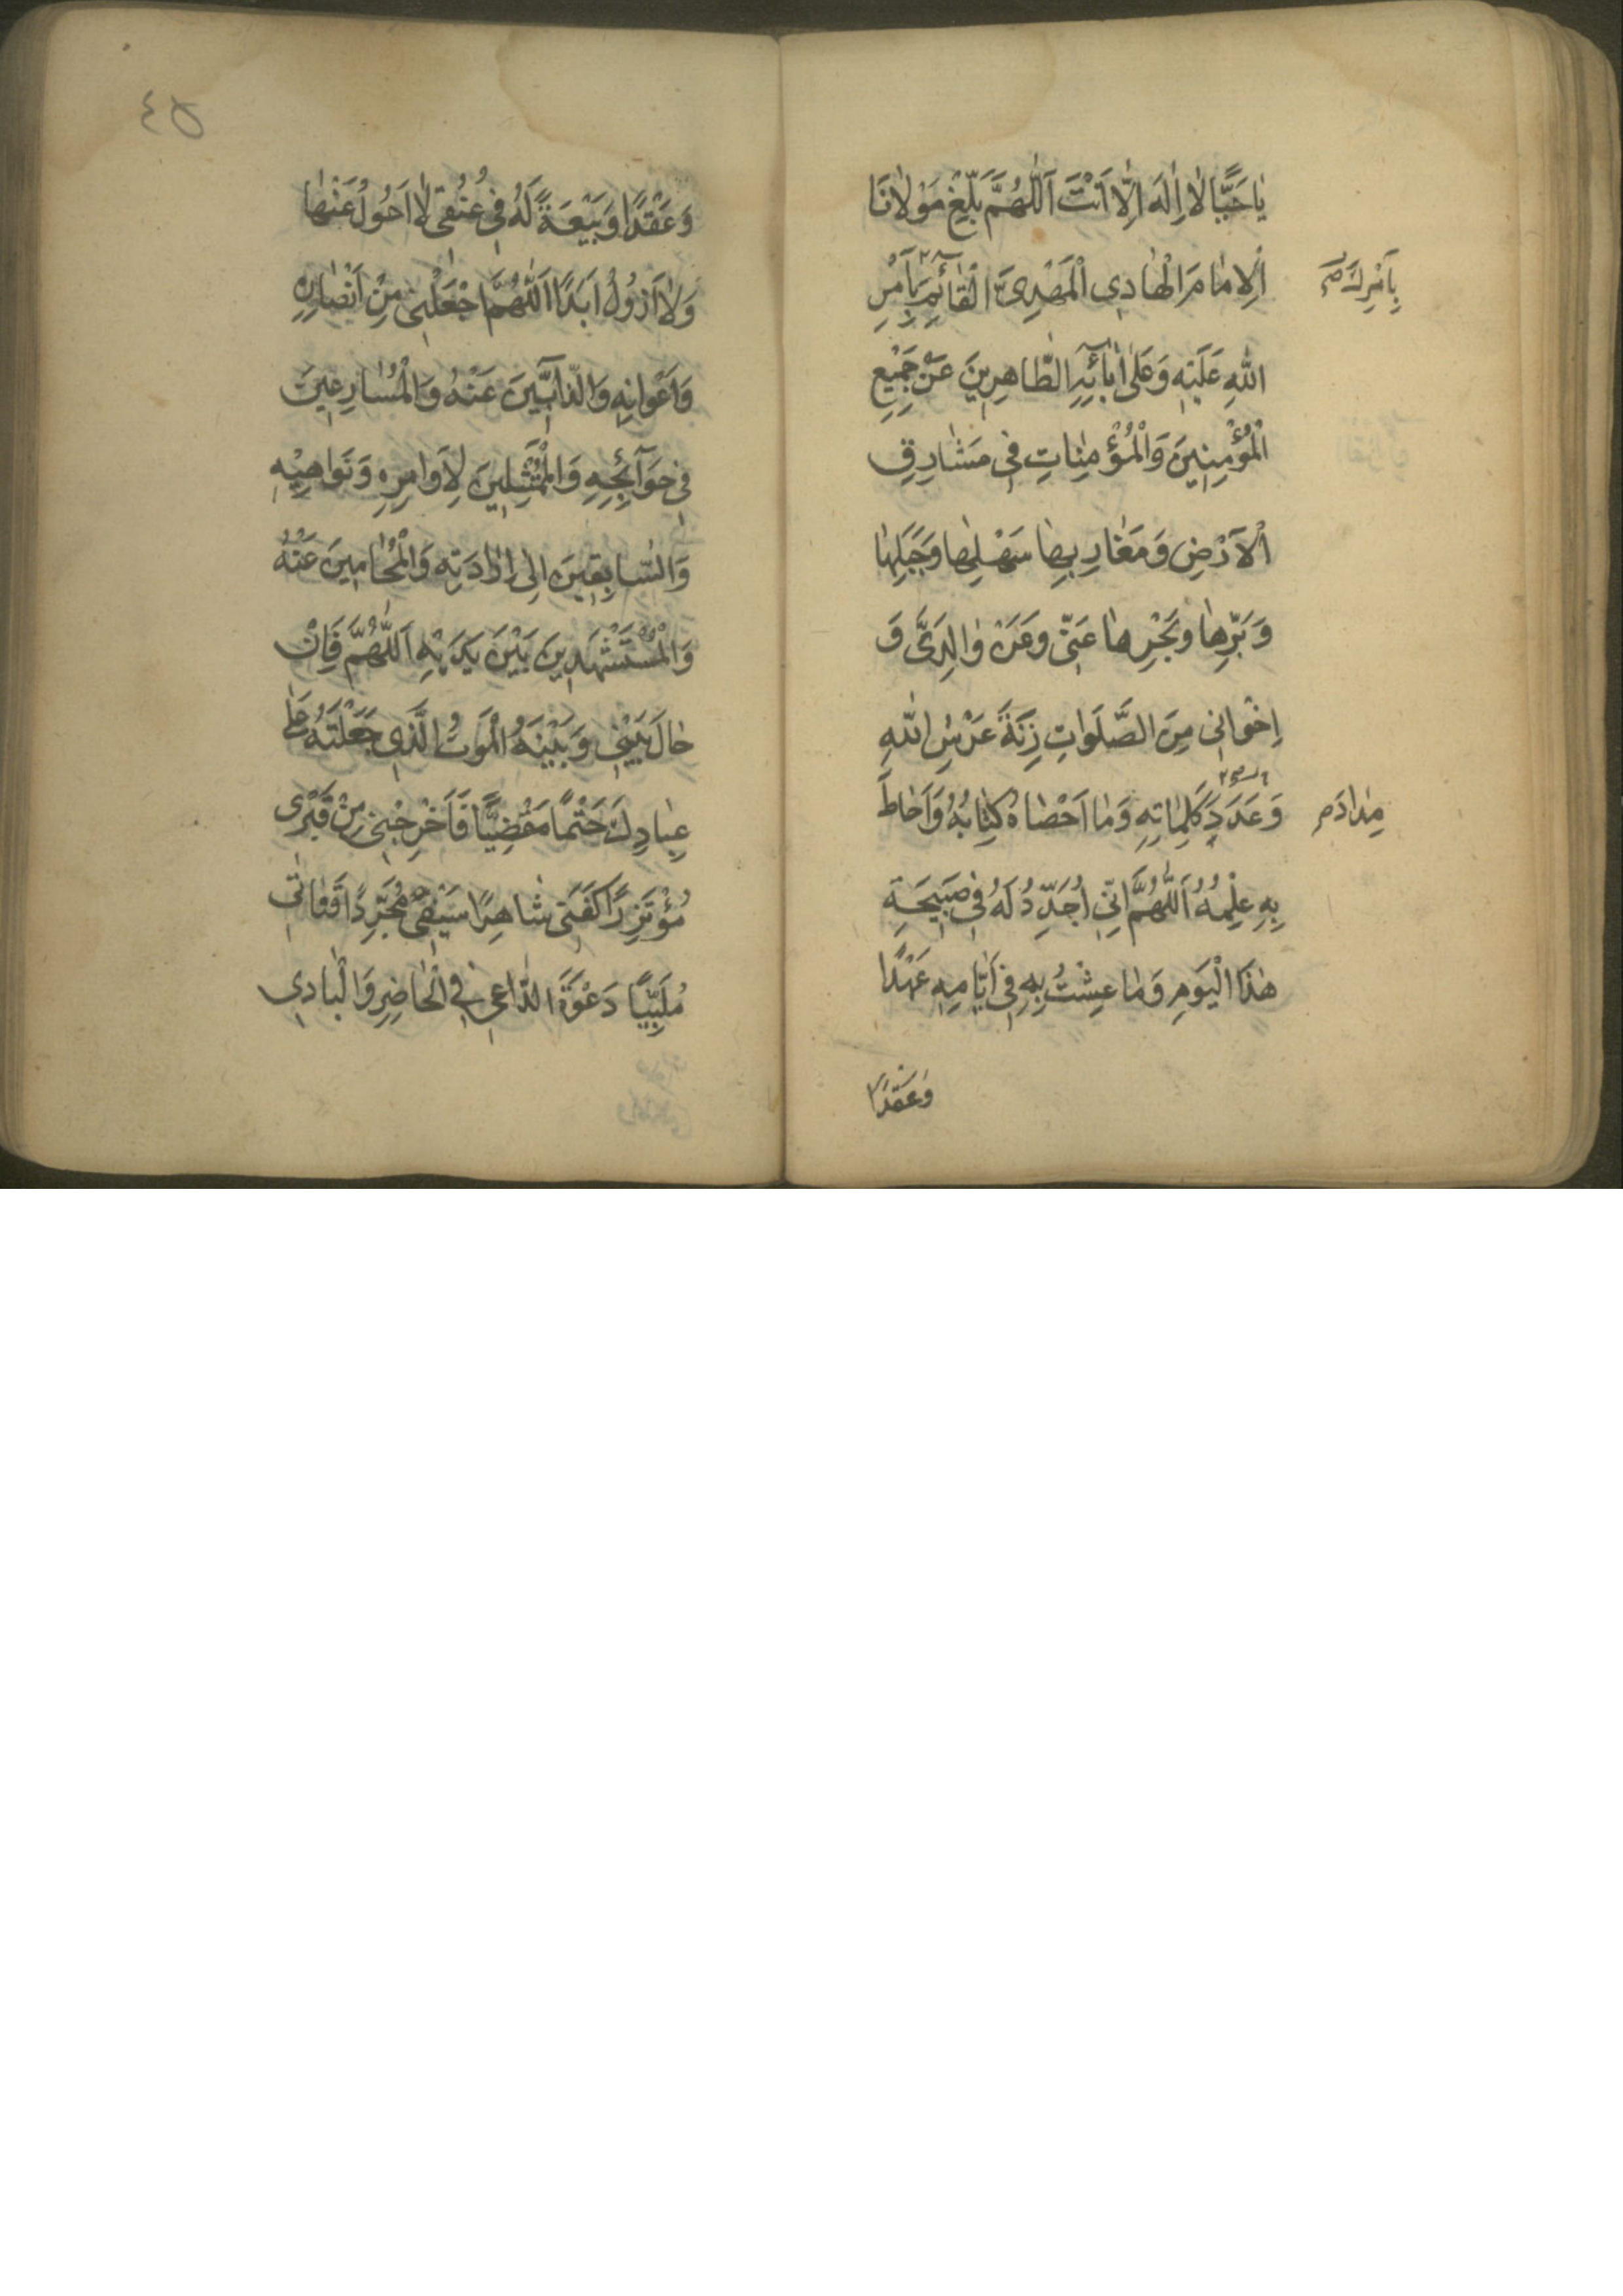 يٰا حَيًّا لٰا اِلٰهَ اِلّٰا اَنْتَ اَللّٰهُمَّ بَلِّغْ مَوْلٰانَا
اَلْاِمٰامَ الْهٰادِي الْمَهْدِيَّ الْقٰائِمَ بِاَمْرِ
بِاَمْرِكَ
اللّٰهِ عَلَيْهِ وَعَلٰى اٰبٰائِهِ الطّٰاهِرِينَ عَنْ جَمِيْعِ
الْمُؤْمِنِينَ وَالْمُؤْمِنٰاتِ فِي مَشٰارِقِ
الْاَرْضِ وَمَغٰارِبِهٰا سَهْلِهٰا وَجَبَلِهٰا
وَبَرِّهٰا وَبَحْرِهٰا عَنّي وَعَنْ وٰالِدَىَّ وَ
اِخْوٰانِي مِنَ الصَّلَوٰاتِ زِنَةَ عَرْشِ اللّٰهِ
وَعَدَدَ كَلِمٰاتِهِ وَمٰا اَحْصٰاهُ كِتٰابُهُ وَاَحٰاطَ
مِدٰادَ
بِهِ عِلْمُهُ اَللّٰهُمَّ اِنّي اُجَدِّدُ لَهُ فِي صَبِيحَةِ
هٰذَا الْيَوْمِ وَمٰا عِشْتُ بِهِ فِي اَيّٰامِهِ عَهْدًا
وَعَقْدًا
٤٥
وَعَقْدًا وَبَيْعَةً لَهُ فِي عُنُقِي لٰا اَحُولُ عَنْهٰا
وَلٰا اَزُولُ اَبَدًا اَللّٰهُمَّ اجْعَلْنِي مِنْ اَنْصٰارِهِ
وَاَعْوٰانِهِ وَالذّٰابّينَ عَنْهُ وَالْمُسٰارِعِينَ
فِي حَوٰائِجِهِ وَالْمُمْتَثِلِينَ لِاَوٰامِرِهِ وَنَوٰاهِيْهِ
وَالسّٰابِقِينَ اِلٰى اِرٰادَتِهِ وَالْمُحٰامِينَ عَنْهُ
وَالْمُسْتَشْهَدِينَ بَيْنَ يَدَيْهِ اَللّٰهُمَّ فَاِنْ
حٰالَ بَيْنِي وَبَيْنَهُ الْمَوْتُ الَّذِي جَعَلْتَهُ عَلٰى
عِبٰادِكَ حَتْمًا مَقْضِيًّا فَاَخْرِجْنِي مِنْ قَبْرِي
مُؤْتَزِرًا كَفَنَي شٰاهِرًا سَيْفِي مُجَرِّدًا قَنٰاتِي
مُلَبِّيًا دَعْوَةَ الدّٰاعِي فِي الْحٰاضِرِ وَالْبٰادِي